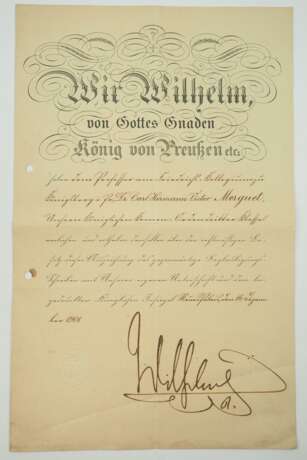 Wir Wilhelm,
von Gottes Gnaden
König von Preußen etc.
haben dem Professor am Friedrichs-Kollegium zu
Königsberg i. Pr. Dr. Carl Hermann Victor Merguet,
Unseren Königlichen Kronen-Orden dritter Klasse
verliehen und ertheilen demselben über den rechtmäßigen Be-
sitz dieser Auszeichnung das gegenwärtige Beglaubigungs-
Schreiben mit Unserer eigenen Unterschrift und dem
beigedruckten Königlichen Insiegel.
ber 1901
Wilhelm
R.